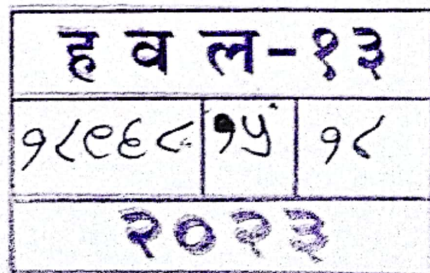 ह व ल-१३
१८९६८ १५ १८
२०२३